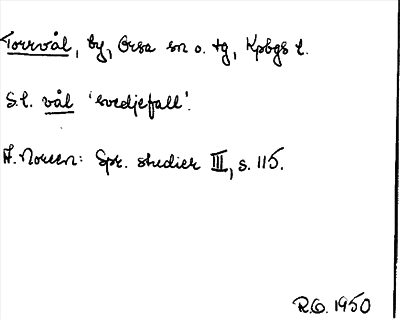 Torrvål, by, Orsa sn o. tg, Kpbgs l.
S.l. vål 'svedjefall'.
A. Noreen: Spr. studier III, s. 115.
R.O. 1950